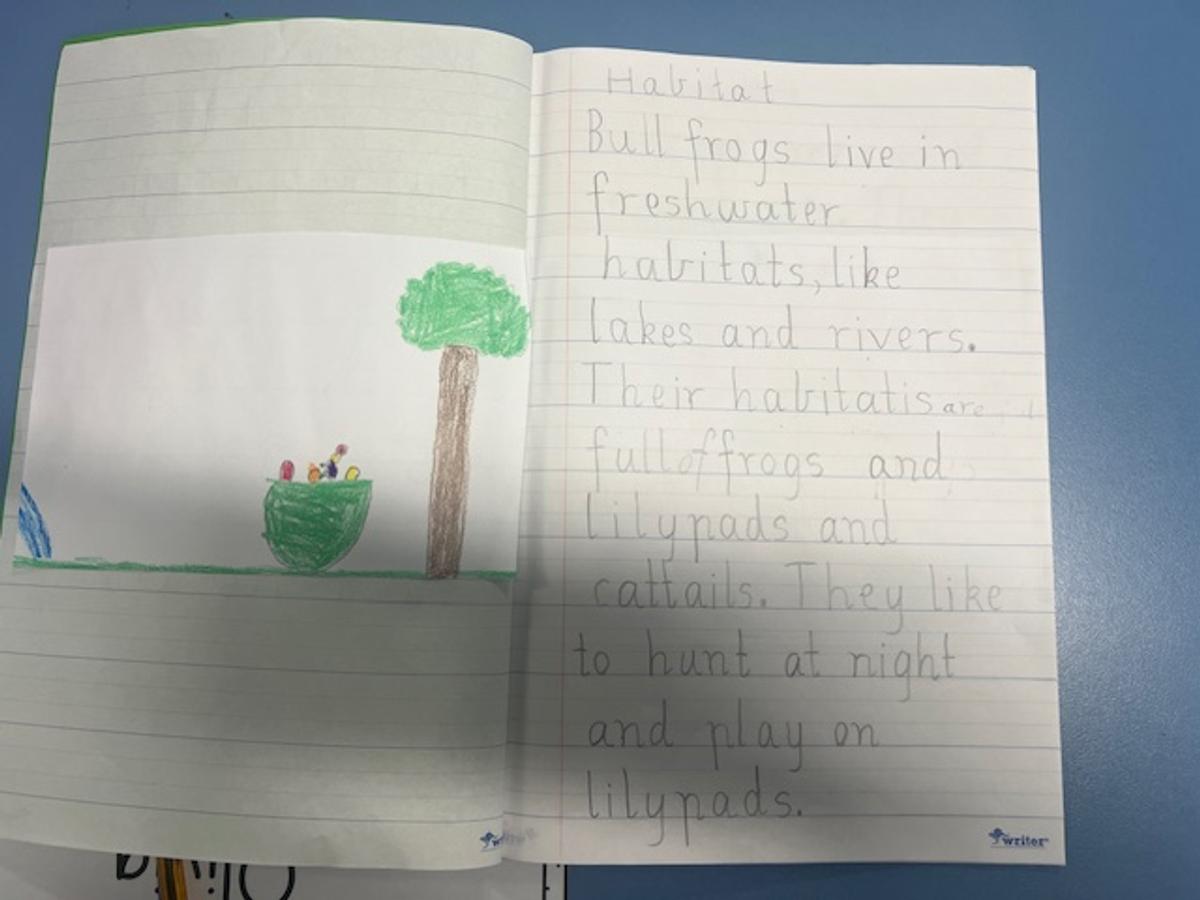 Habitat
Bull frogs live in
freshwater
habitats, like
lakes and rivers.
Their habitatis are
full of frogs and
lilypads and
cattails. They like
to hunt at night
and play on
lilypads.
writer